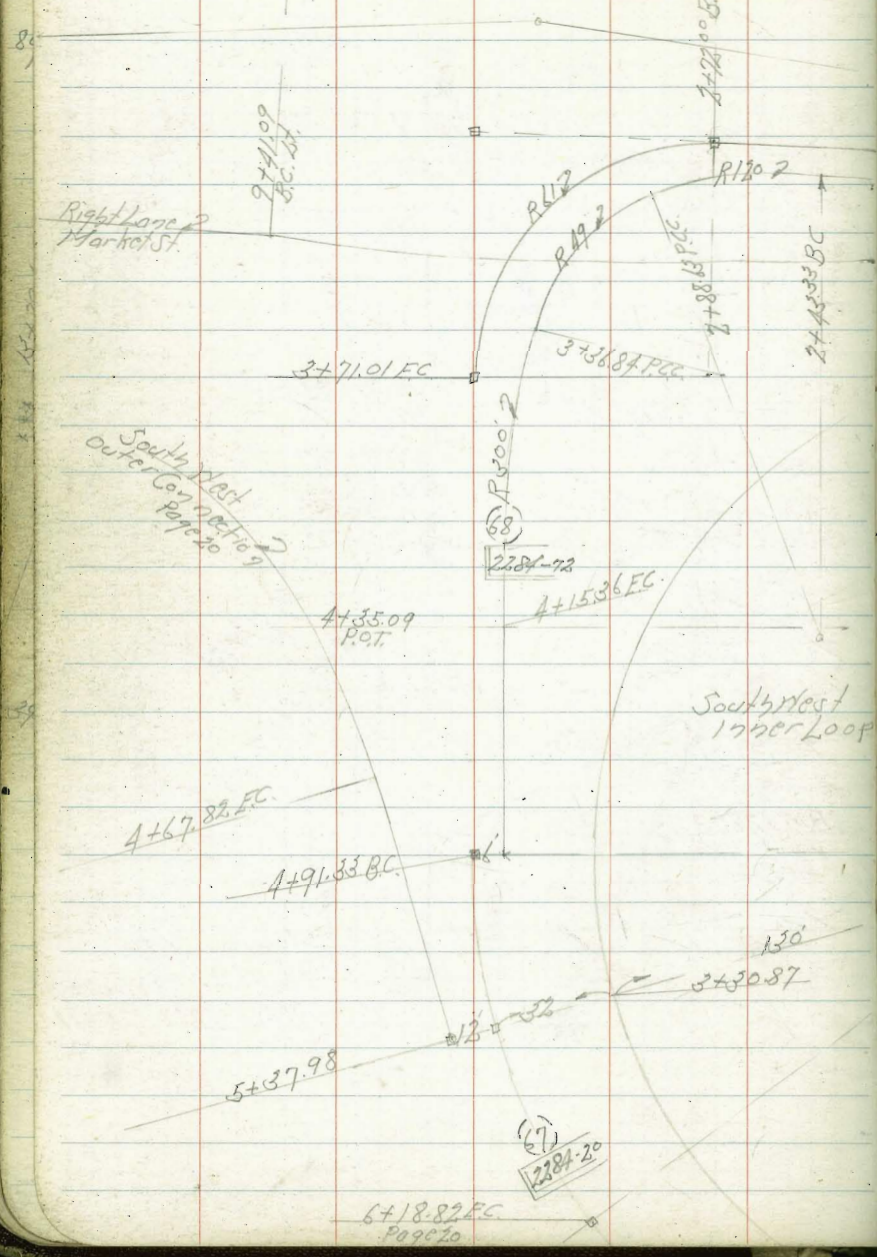 9+41.09
B.C. Lt.
Right Lane
Market St.
R 61.2
R 49.2
R 120.2
2+88.13 P.C.C.
2+43.33 BC
3+36.84 P.C.C.
3+71.01 E.C.
R 300'
South West
Outer Connection
Page 20
(68)
2284-72
4+15.36 E.C.
4+35.09
P.O.T.
South West
Inner Loop
4+67.82 E.C.
4+91.33 B.C.
6'
130'
3+30.87
32
12'
5+37.98
(67)
2284-20
6+18.82 E.C.
Page 20